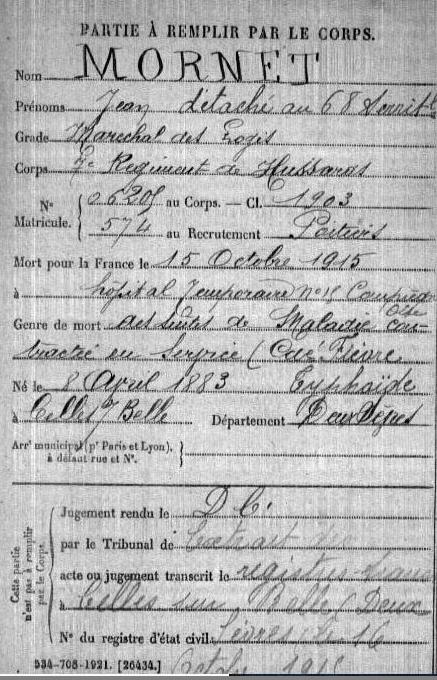 PARTIE À REMPLIR PAR LE CORPS.
Nom MORNET
Prénoms Jean détaché au 68
Grade Maréchal des Logis
Corps 7e Régiment de Hussards
No Matricule. { au Corps. — Cl. 1903
574 au Recrutement Poitiers
Mort pour la France le 15 Octobre 1915
à hopital Temporaire no 18
Genre de mort des suites de Maladie con-
tractée en Service (Cas Fièvre
Né le 8 Avril 1883 Typhoïde
à Celles s/ Belle Département Deux Sèvres
Arrt municipal (pr Paris et Lyon), }
à défaut rue et No.
Cette partie n'est pas à remplir par le Corps.
Jugement rendu le
par le Tribunal de Extrait
acte ou jugement transcrit le registre
à Celles sur Belle (Deux
No du registre d'état civil Sèvres) le 16
534-708-1921. [26434.] Octobre 1915